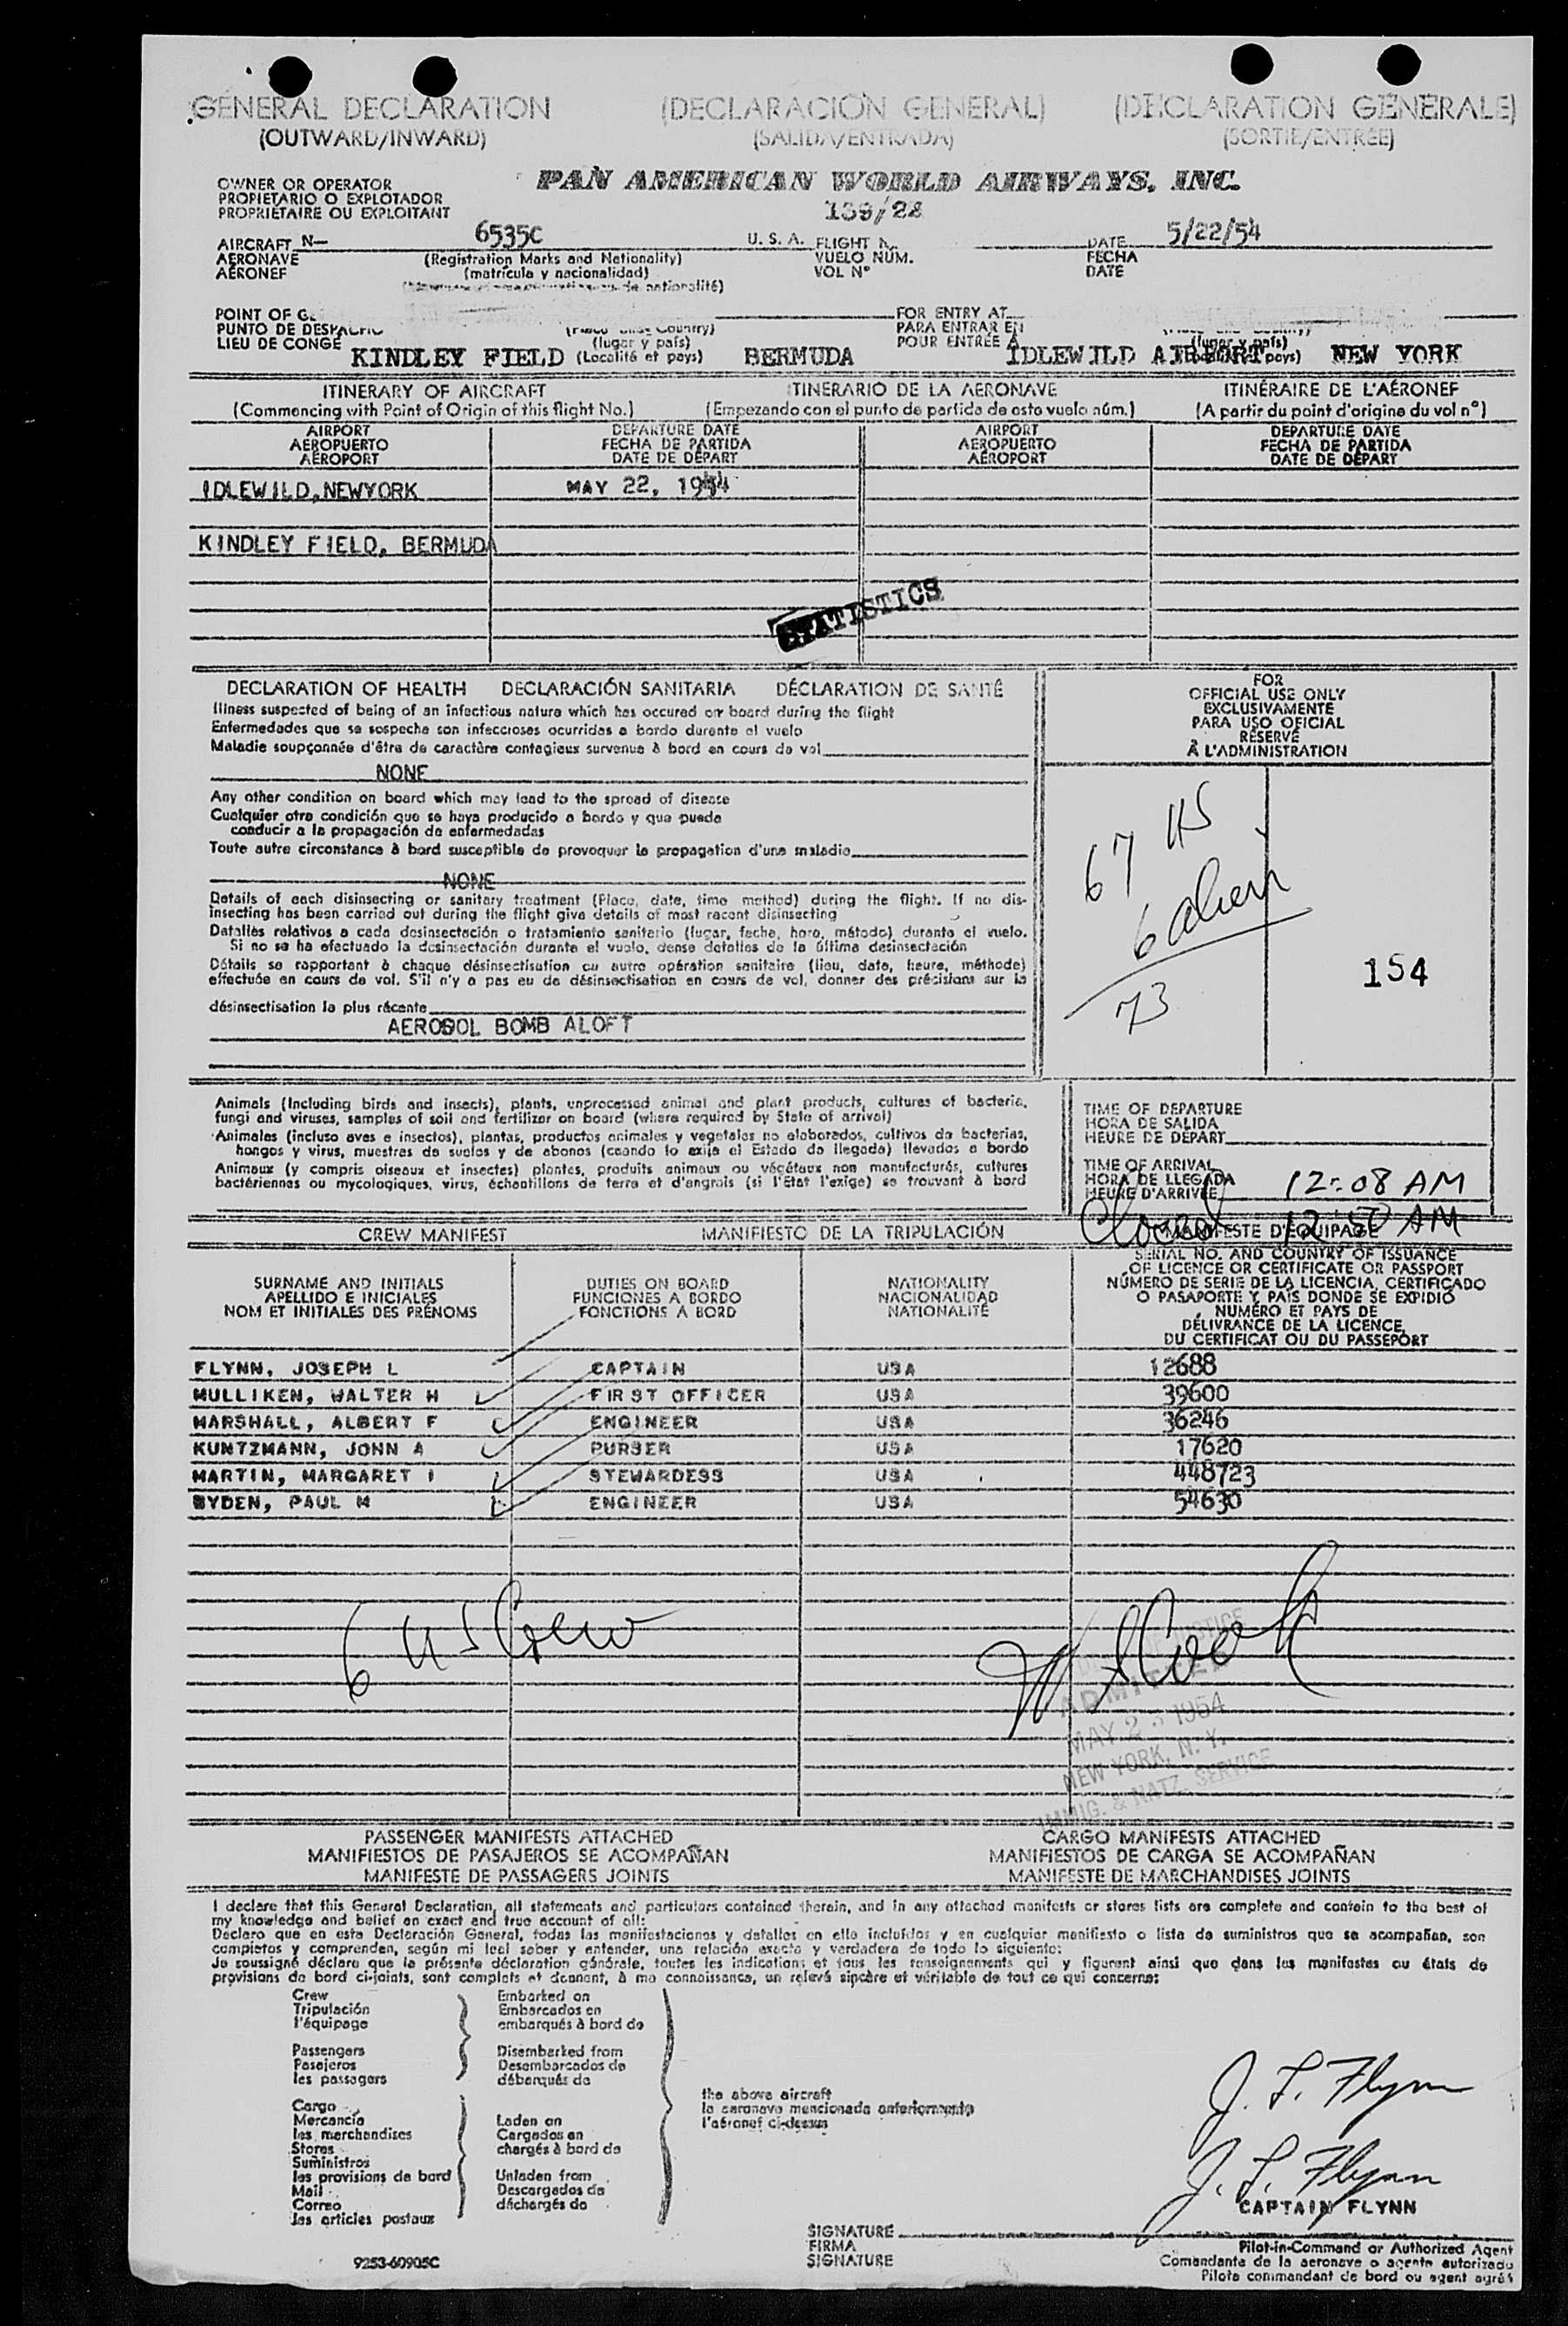 GENERAL DECLARATION (DECLARACIÓN GENERAL) (DÉCLARATION GÉNÉRALE)
(OUTWARD/INWARD) (SALIDA/ENTRADA) (SORTIE/ENTRÉE)
OWNER OR OPERATOR PAN AMERICAN WORLD AIRWAYS, INC.
PROPIETARIO O EXPLOTADOR
PROPRIÉTAIRE OU EXPLOITANT 139/28
AIRCRAFT N— 6535C U. S. A. FLIGHT N DATE 5/22/54
AERONAVE (Registration Marks and Nationality) VUELO NÚM. FECHA
AÉRONEF (matrícula y nacionalidad) VOL N° DATE
de nationalité)
POINT OF FOR ENTRY AT
PUNTO DE DESPACHO Country) PARA ENTRAR EN
LIEU DE CONGÉ (lugar y país) POUR ENTRÉE À (lugar y país)
KINDLEY FIELD (Localité et pays) BERMUDA IDLEWILD AIRPORT pays) NEW YORK
ITINERARY OF AIRCRAFT ITINERARIO DE LA AERONAVE ITINÉRAIRE DE L'AÉRONEF
(Commencing with Point of Origin of this flight No.) (Empezando con el punto de partida de esto vuelo núm.) (A partir du point d'origine du vol n°)
AIRPORT DEPARTURE DATE AIRPORT DEPARTURE DATE
AEROPUERTO FECHA DE PARTIDA AEROPUERTO FECHA DE PARTIDA
AÉROPORT DATE DE DÉPART AÉROPORT DATE DE DÉPART
IDLEWILD, NEWYORK MAY 22, 1954
KINDLEY FIELD, BERMUDA
STATISTICS
DECLARATION OF HEALTH DECLARACIÓN SANITARIA DÉCLARATION DE SANTÉ
Illness suspected of being of an infectious nature which has occured on board during the flight
Enfermedades que se sospecha son infecciosas ocurridas a bordo durante el vuelo
Maladie soupçonnée d'être de caractère contagieux survenue à bord en cours de vol
NONE
Any other condition on board which may lead to the spread of disease
Cualquier otra condición que se haya producido a bordo y que pueda
conducir a la propagación de enfermedades
Toute autre circonstance à bord susceptible de provoquer la propagation d'une maladie
NONE
Details of each disinsecting or sanitary treatment (Place, date, time method) during the flight. If no dis-
insecting has been carried out during the flight give details of most recent disinsecting
Detalles relativos a cada desinsectación o tratamiento sanitario (lugar, fecha, hora, método) durante el vuelo.
Si no se ha efectuado la desinsectación durante el vuelo, dense detalles de la última desinsectación
Détails se rapportant à chaque désinsectisation ou autre opération sanitaire (lieu, date, heure, méthode)
effectuée en cours de vol. S'il n'y a pas eu de désinsectisation en cours de vol, donner des précisions sur la
désinsectisation la plus récente
AEROSOL BOMB ALOFT
FOR
OFFICIAL USE ONLY
EXCLUSIVAMENTE
PARA USO OFICIAL
RÉSERVÉ
À L'ADMINISTRATION
67 US
6 alien
73
154
Animals (Including birds and insects), plants, unprocessed animal and plant products, cultures of bacteria,
fungi and viruses, samples of soil and fertilizer on board (where required by State of arrival)
Animales (incluso aves e insectos), plantas, productos animales y vegetales no elaborados, cultivos de bacterias,
hongos y virus, muestras de suelos y de abonos (cuando lo exija el Estado de llegada) llevados a bordo
Animaux (y compris oiseaux et insectes) plantes, produits animaux ou végétaux non manufacturés, cultures
bactériennes ou mycologiques, virus, échantillons de terre et d'engrais (si l'État l'exige) se trouvant à bord
TIME OF DEPARTURE
HORA DE SALIDA
HEURE DE DÉPART
TIME OF ARRIVAL
HORA DE LLEGADA 12:08 AM
HEURE D'ARRIVÉE
Closed 12 50 AM
CREW MANIFEST MANIFIESTO DE LA TRIPULACIÓN MANIFESTE D'ÉQUIPAGE
SURNAME AND INITIALS DUTIES ON BOARD NATIONALITY
APELLIDO E INICIALES FUNCIONES A BORDO NACIONALIDAD
NOM ET INITIALES DES PRÉNOMS FONCTIONS À BORD NATIONALITÉ
SERIAL NO. AND COUNTRY OF ISSUANCE
OF LICENCE OR CERTIFICATE OR PASSPORT
NÚMERO DE SERIE DE LA LICENCIA, CERTIFICADO
O PASAPORTE Y PAÍS DONDE SE EXPIDIÓ
NUMÉRO ET PAYS DE
DÉLIVRANCE DE LA LICENCE,
DU CERTIFICAT OU DU PASSEPORT
FLYNN, JOSEPH L CAPTAIN USA 12688
MULLIKEN, WALTER H FIRST OFFICER USA 39600
MARSHALL, ALBERT F ENGINEER USA 36246
KUNTZMANN, JOHN A PURSER USA 17620
MARTIN, MARGARET I STEWARDESS USA 448723
RYDEN, PAUL M ENGINEER USA 54630
6 US Crew
ADMITTED
MAY 23 1954
NEW YORK, N. Y.
IMMIG. & NATZ. SERVICE
PASSENGER MANIFESTS ATTACHED CARGO MANIFESTS ATTACHED
MANIFIESTOS DE PASAJEROS SE ACOMPAÑAN MANIFIESTOS DE CARGA SE ACOMPAÑAN
MANIFESTE DE PASSAGERS JOINTS MANIFESTE DE MARCHANDISES JOINTS
I declare that this General Declaration, all statements and particulars contained therein, and in any attached manifests or stores lists are complete and contain to the best of
my knowledge and belief an exact and true account of all:
Declaro que en esta Declaración General, todas las manifestaciones y detalles en ella incluídos y en cualquier manifiesto o lista de suministros que se acompañan, son
completos y comprenden, según mi leal saber y entender, una relación exacta y verdadera de todo lo siguiente:
Je soussigné déclare que la présente déclaration générale, toutes les indications et tous les renseignements qui y figurent ainsi que dans les manifestes ou états de
provisions de bord ci-joints, sont complets et donnent, à ma connaissance, un relevé sincère et véritable de tout ce qui concerne:
Crew Embarked on
Tripulación Embarcados en
l'équipage embarqués à bord de
Passengers Disembarked from
Pasajeros Desembarcados de
les passagers débarqués de
the above aircraft
la aeronave mencionada anteriormente
l'aéronef ci-dessus
Cargo
Mercancía Laden on
les marchandises Cargados en
Stores chargés à bord de
Suministros
les provisions de bord Unladen from
Mail Descargados de
Correo déchargés de
les articles postaux
J. L. Flynn
J. L. Flynn
CAPTAIN FLYNN
SIGNATURE
FIRMA Pilot-in-Command or Authorized Agent
SIGNATURE Comandante de la aeronave o agente autorizado
Pilote commandant de bord ou agent agréé
9253-60905C